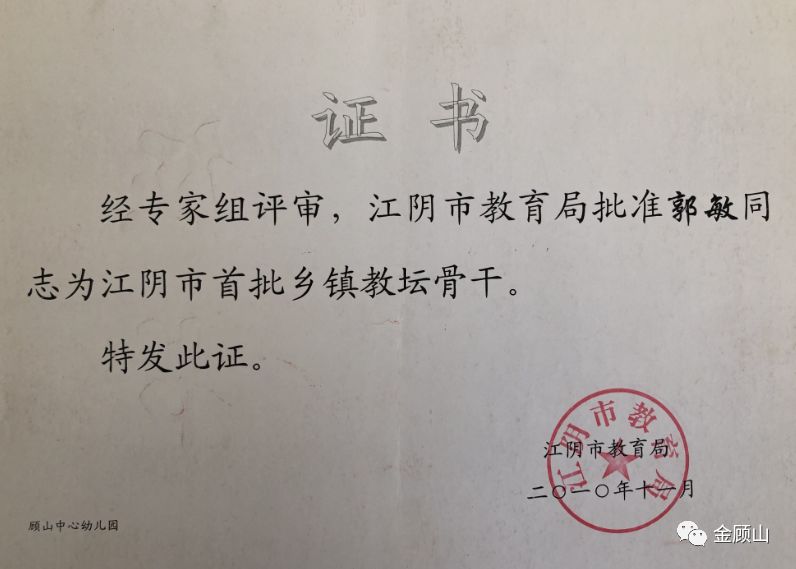 证书
经专家组评审，江阴市教育局批准郭敏同
志为江阴市首批乡镇教坛骨干。
特发此证。
江阴市教育局
江阴市教育局
二〇一〇年十一月
顾山中心幼儿园
金顾山